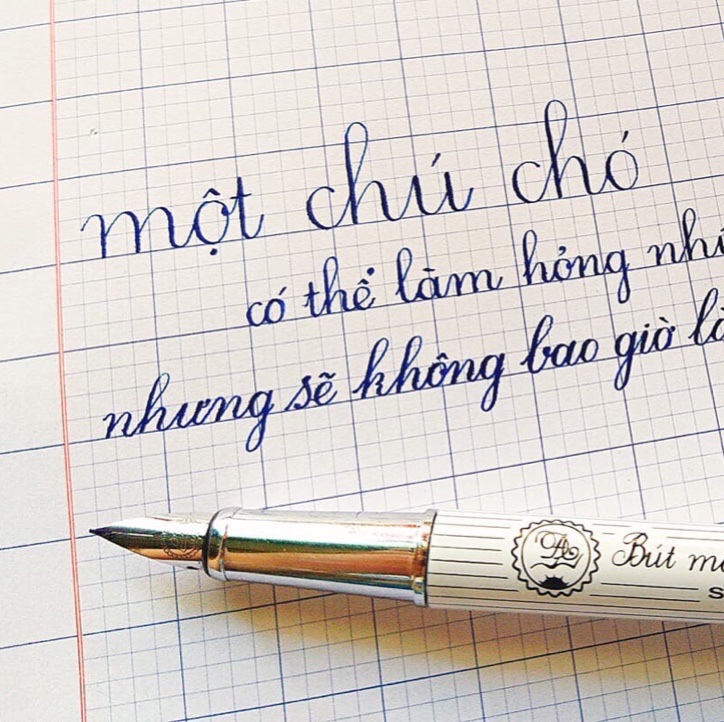 một chú chó
có thể làm hỏng
nhưng sẽ không bao giờ
Bút